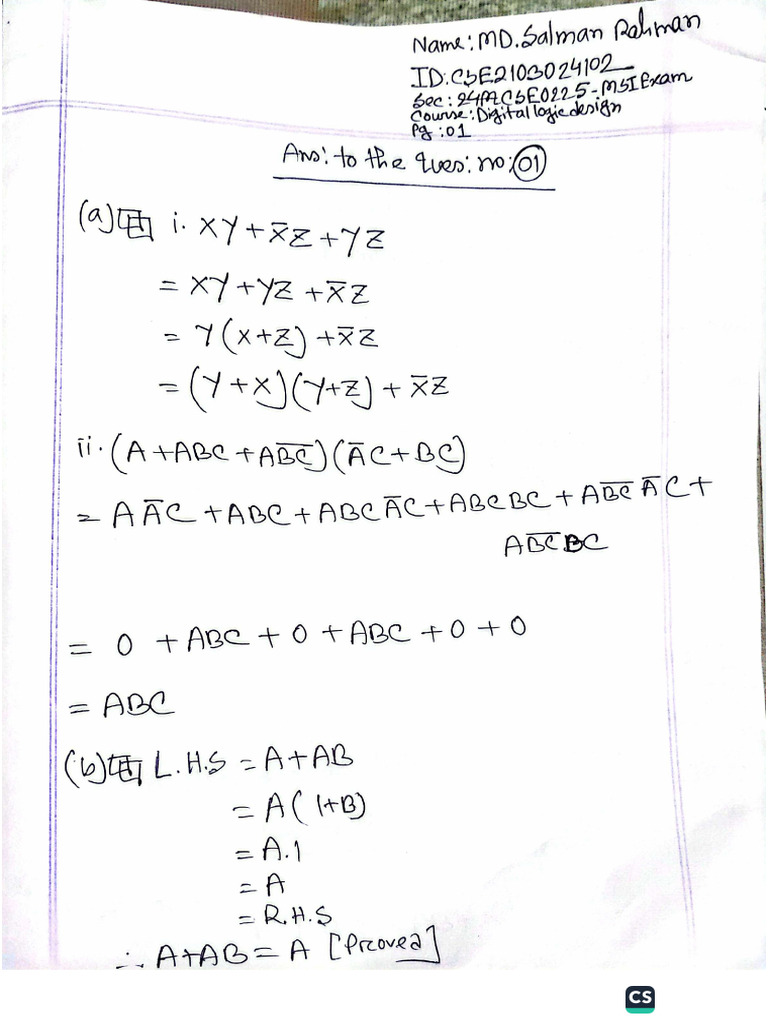 Name: MD. Salman Rahman
ID: CSE2103024102
Sec: 24MCSE0225-MSI Exam
Course: Digital logic design
Pg: 01
Ans: to the ques: no: 01
(a) i. XY + X̅Z + YZ
= XY + YZ + X̅Z
= Y(X+Z) + X̅Z
= (Y+X)(Y+Z) + X̅Z
ii. (A + ABC + AB̅C̅)(A̅C + BC)
= AA̅C + ABC + ABCA̅C + ABCBC + AB̅C̅A̅C +
AB̅C̅BC
= 0 + ABC + 0 + ABC + 0 + 0
= ABC
(b) L.H.S = A + AB
= A(1+B)
= A.1
= A
= R.H.S
∴ A+AB = A [Proved]
CS